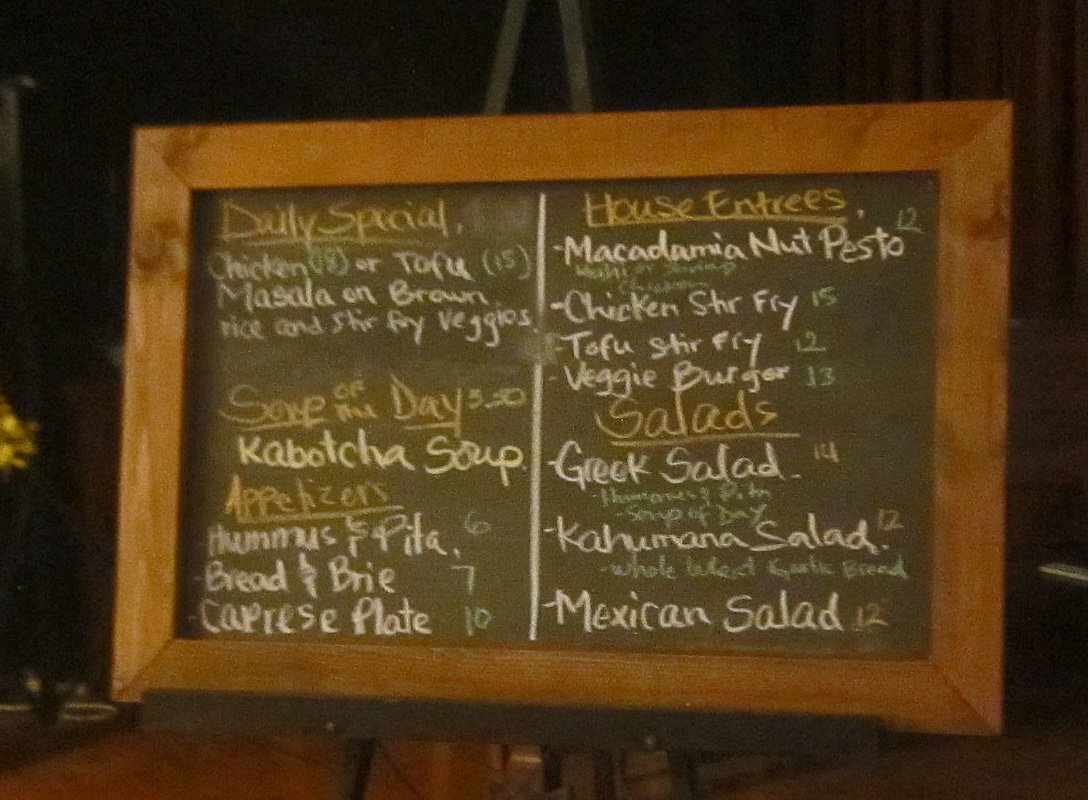 Daily Special.
Chicken (18) or Tofu (15)
Masala on Brown
rice and stir fry veggies.
Soup of the Day 5.50
Kabotcha Soup
Appetizers
Hummus & Pita. 6
- Bread & Brie 7
- Caprese Plate 10
House Entrees.
- Macadamia Nut Pesto 12
Mahi or Shrimp
- Chicken Stir Fry 15
- Tofu stir fry 12
- Veggie Burger 13
Salads
- Greek Salad. 14
- Hummus & Pita
- Soup of Day
- Kahumana Salad. 12
- whole wheat Garlic Bread
- Mexican Salad 12